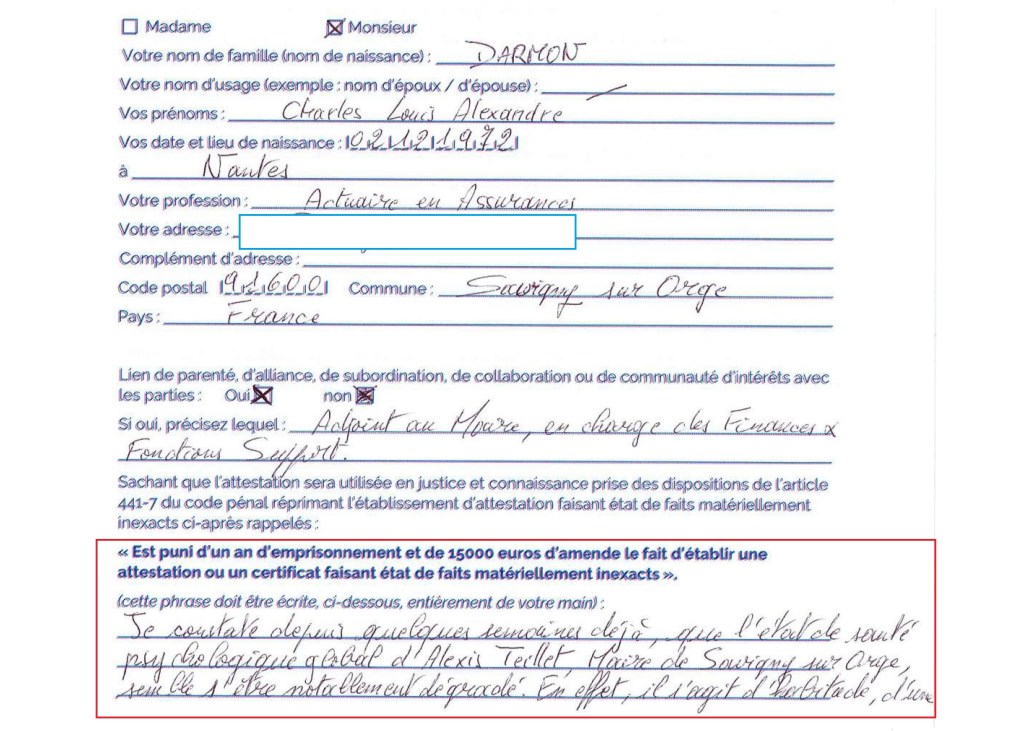 ☐ Madame ☒ Monsieur
Votre nom de famille (nom de naissance) : DARMON
Votre nom d'usage (exemple : nom d'époux / d'épouse) : /
Vos prénoms : Charles Louis Alexandre
Vos date et lieu de naissance : 02121972
à Nantes
Votre profession : Actuaire en Assurances
Votre adresse :
Complément d'adresse :
Code postal 91600 Commune : Savigny sur Orge
Pays : France
Lien de parenté, d'alliance, de subordination, de collaboration ou de communauté d'intérêts avec
les parties : Oui ☒ non ☒
Si oui, précisez lequel : Adjoint au Maire, en charge des Finances &
Fonctions Support.
Sachant que l'attestation sera utilisée en justice et connaissance prise des dispositions de l'article
441-7 du code pénal réprimant l'établissement d'attestation faisant état de faits matériellement
inexacts ci-après rappelés :
« Est puni d'un an d'emprisonnement et de 15000 euros d'amende le fait d'établir une
attestation ou un certificat faisant état de faits matériellement inexacts ».
(cette phrase doit être écrite, ci-dessous, entièrement de votre main) :
Je constate depuis quelques semaines déjà, que l'état de santé
psychologique global d'Alexis Teillet, Maire de Savigny sur Orge,
semble s'être notablement dégradé. En effet, il s'agit d'habitude, d'une